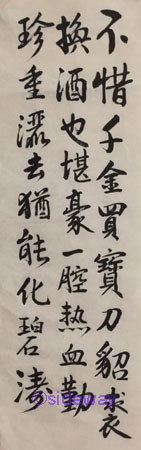 不惜千金買寶刀貂裘
換酒也堪豪一腔熱血勤
珍重灑去猶能化碧濤